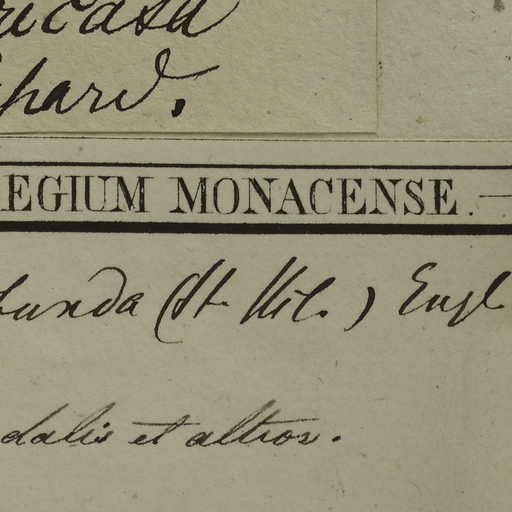 ricata
pard.
EGIUM MONACENSE.
unda (St. Hil.) Engl
dalis et altior.